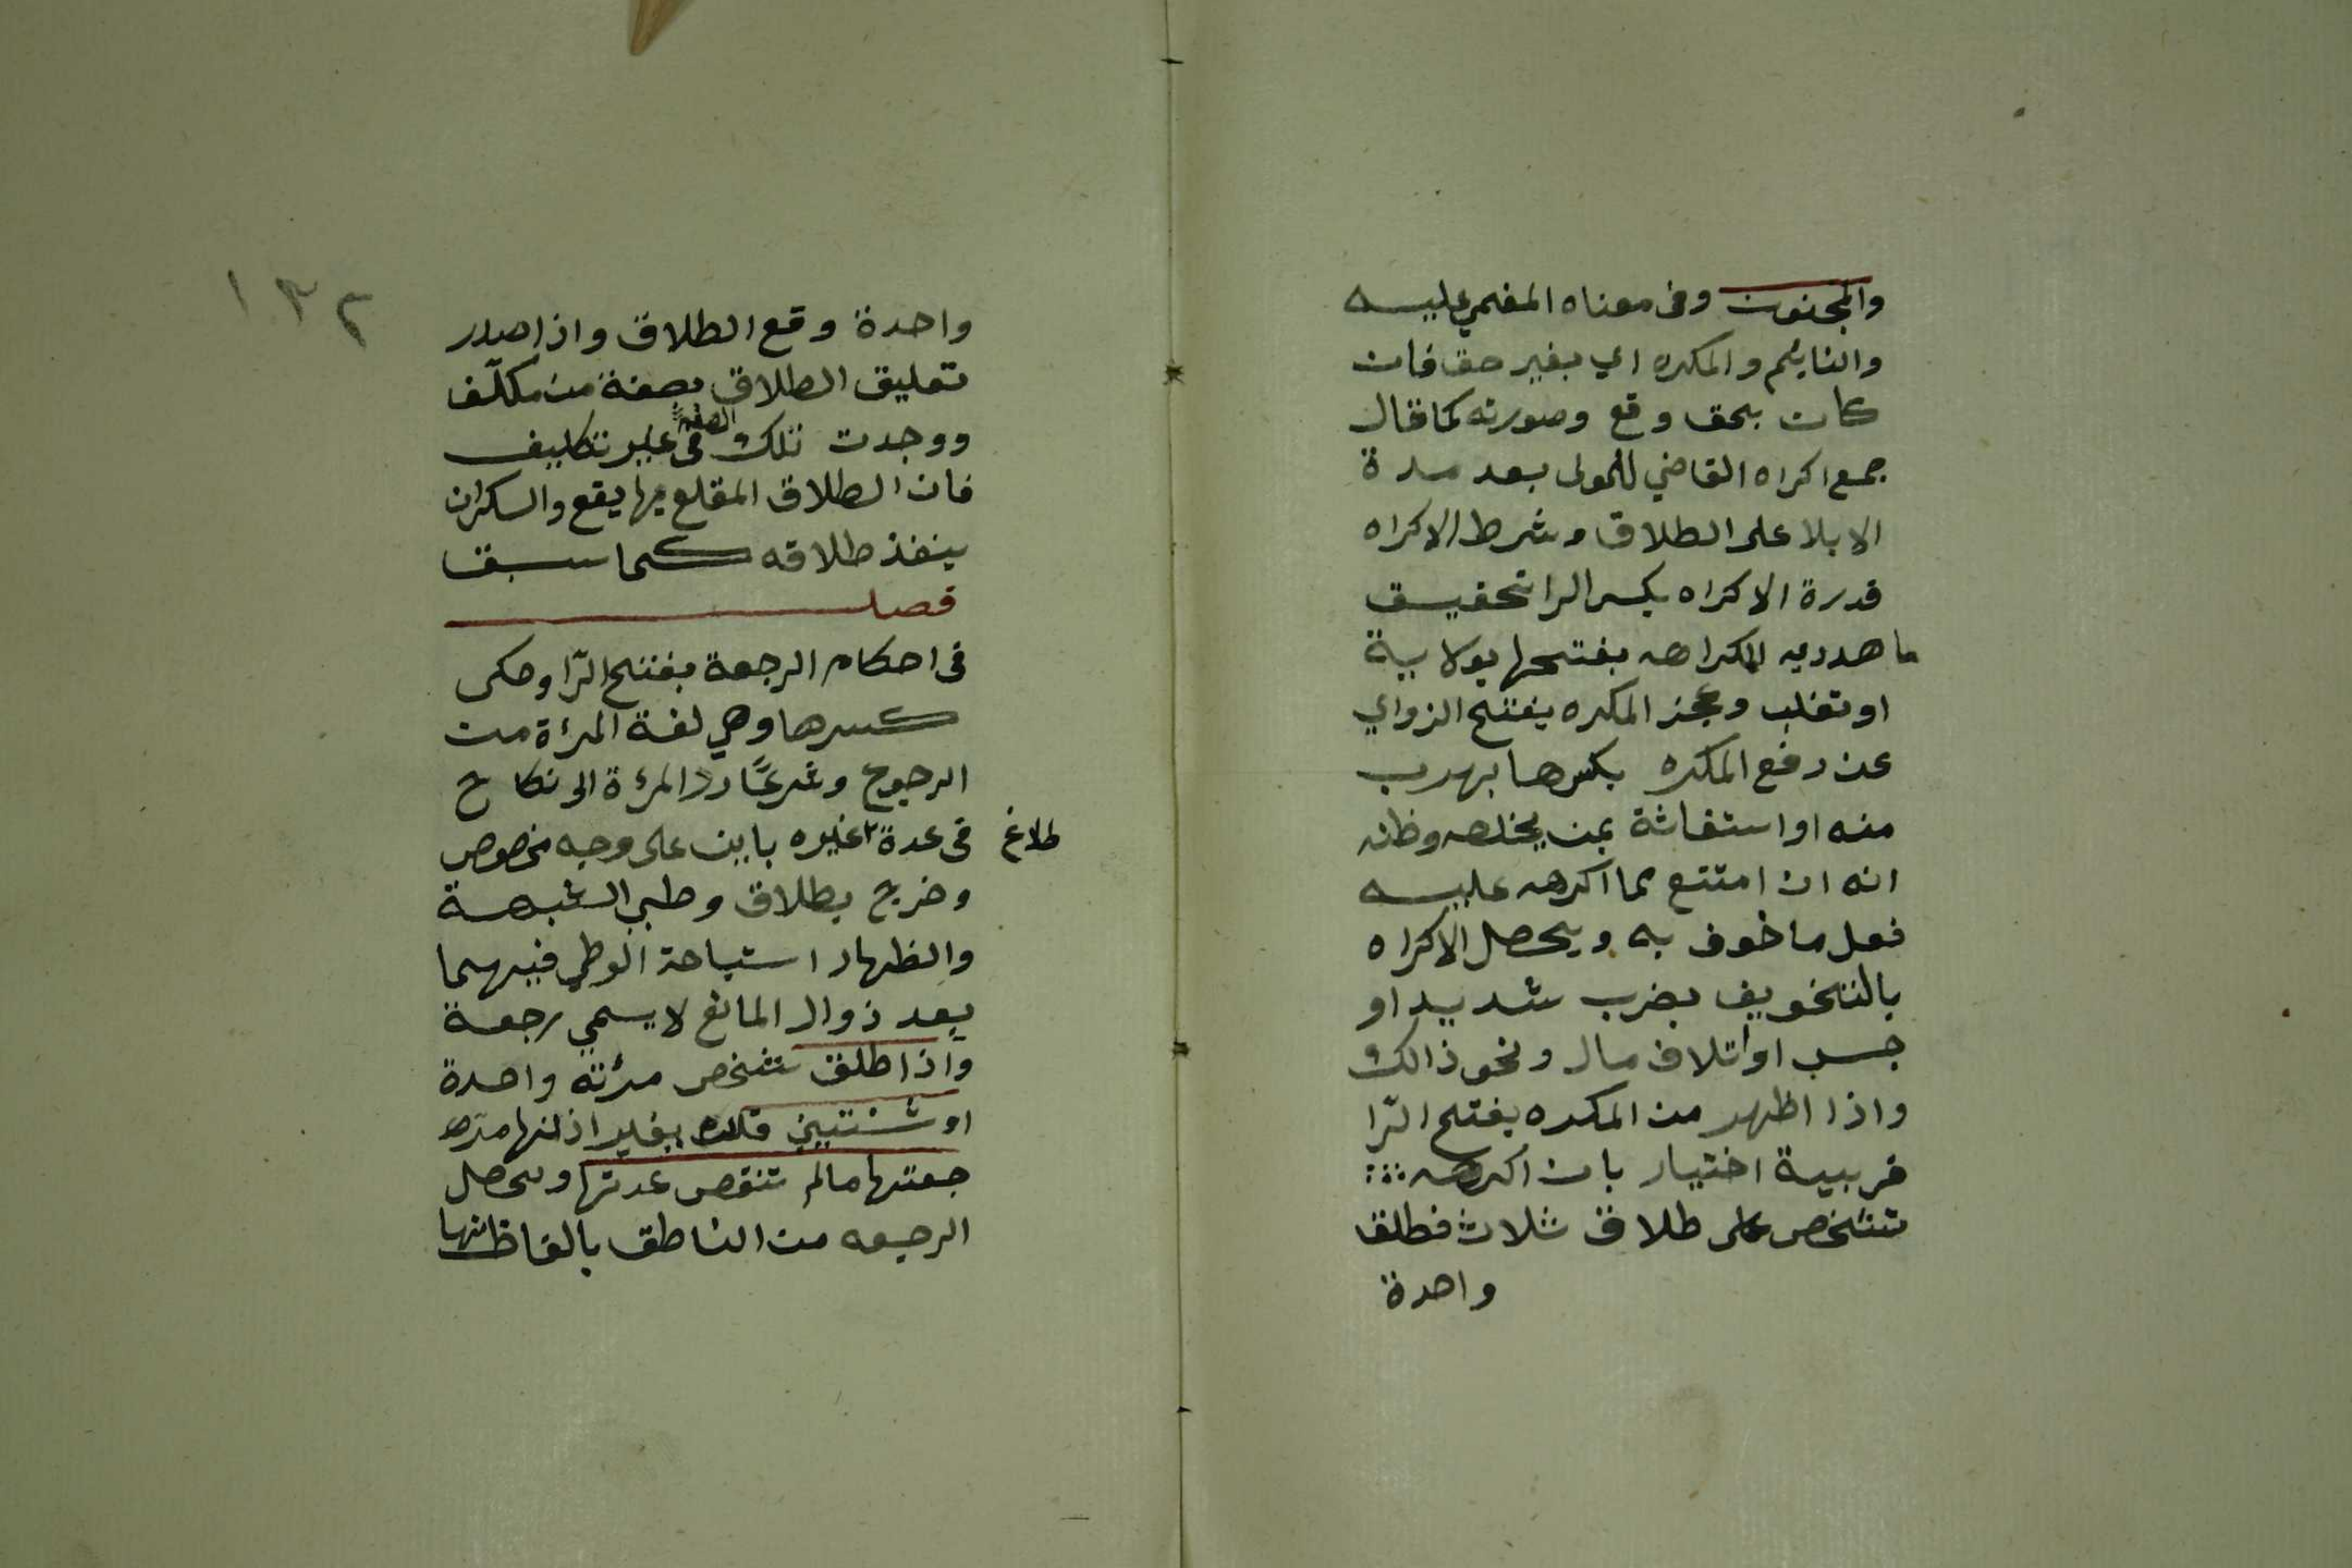 والمجنون وفى معناه المغمي عليه
والنايم والمكره اي بغير حق فان
كان بحق وقع وصورته كما قال
جمع اكراه القاضي للمولى بعد مدة
الايلا على الطلاق وشرط الاكراه
قدرة الاكراه بكسر الرا تحقيق
ما هدد به المكراهه بفتحها بولاية
او تغلب وعجز المكره بفتح الزواي
عن دفع المكره بكسرها بهرب
منه او استغاثة بمن يخلصه وظنه
انه ان امتنع مما اكرهه عليه
فعل ما خوف به ويحصل الاكراه
بالتخويف بضرب شديد او
حبس او اتلاف مال ونحو ذالك
واذا اظهر من المكره بفتح الرّا
قرينة اختيار بان اكرهه
شخص على طلاق ثلاث فطلق
واحدة
١٣٢
واحدة وقع الطلاق واذا صدر
تعليق الطلاق بصفة من مكلّف
ووجدت تلك الصفة فى غير تكليف
فان الطلاق المقلع بها يقع والسكران
ينفذ طلاقه كما سبق
فصل
فى احكام الرجعة بفتح الرّا وحكى
كسرها وهي لغة المرءة من
الرجوع وشرعًا ردّ المرءة الى نكاح
فى عدة غيره باين على وجه مخصوص
طلاغ
وخرج بطلاق وطبي الشبهة
والظهار استباحة الوطي فيهما
بعد ذوال المانع لا يسمي رجعة
واذا طلق شخص مرئته واحدة
او ثنتين فله بغير اذنها مرا
جعتها مالم تنقص عدتها ويحصل
الرجعه من الناطق بالفاظ منها